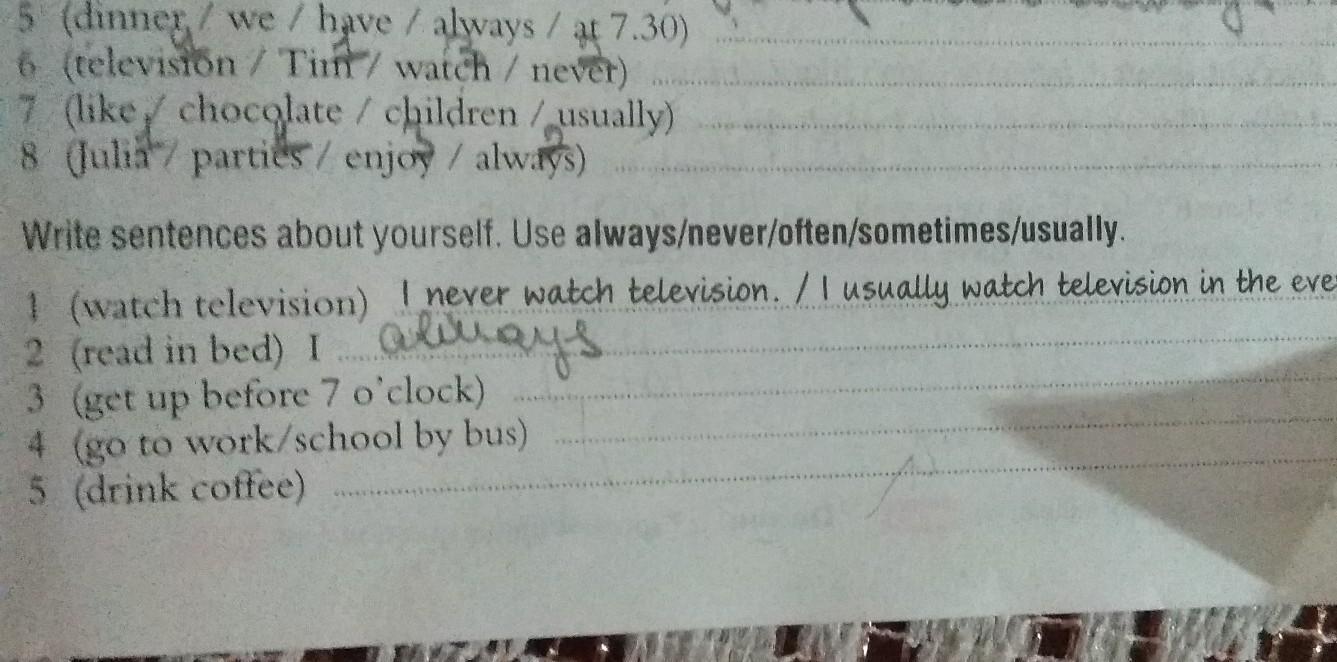 5 (dinner / we / have / always / at 7.30)
6 (television / Tim / watch / never)
7 (like / chocolate / children / usually)
8 (Julia / parties / enjoy / always)
Write sentences about yourself. Use always/never/often/sometimes/usually.
1 (watch television) I never watch television. / I usually watch television in the eve
2 (read in bed) I always
3 (get up before 7 o'clock)
4 (go to work/school by bus)
5 (drink coffee)